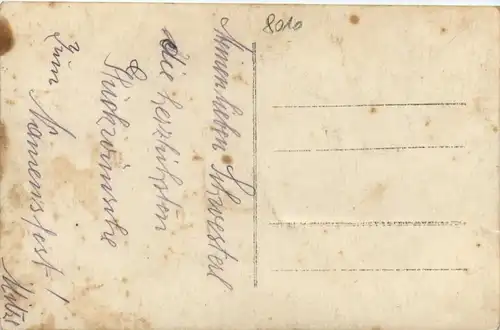 8010
Meinen lieben Schwesterl
die herzlichsten
Glückwünsche
zum Namensfest!
Mitzi